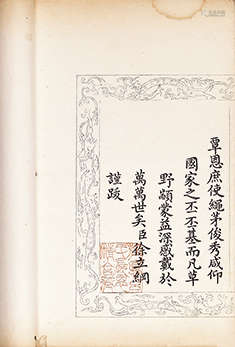 覃恩庶使繩茅俊秀咸仰
國家之丕丕基而凡草
野顓蒙益深感戴於
萬萬世矣臣徐立綱
謹跋